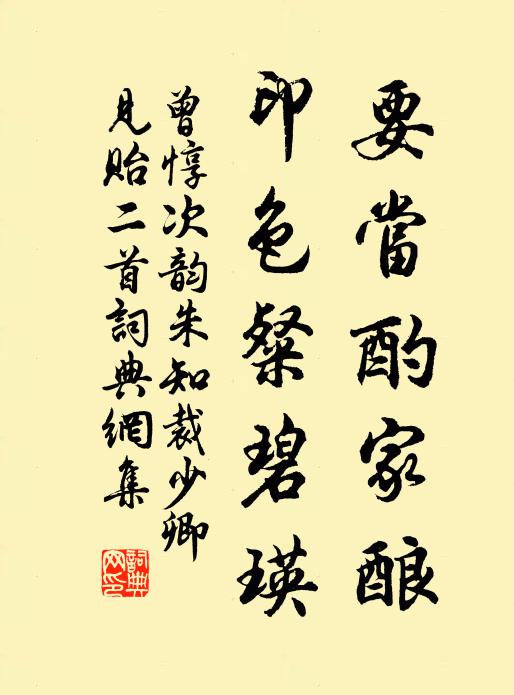 要當酌家酿
印色粲碧瑛
曾惇次韵朱知裁少卿
見貽二首詞典網集
詞典网印